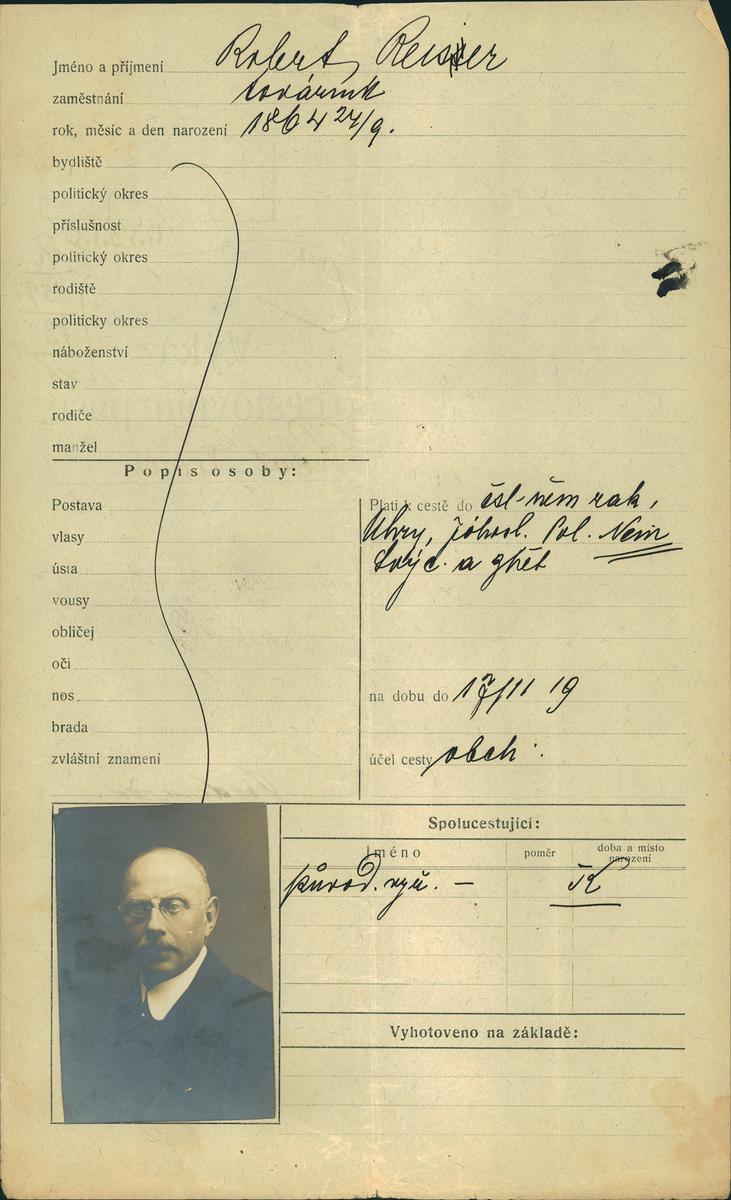 Jméno a příjmení Robert Reiser
zaměstnání továrník
rok, měsíc a den narození 1864 24/9.
bydliště
politický okres
příslušnost
politický okres
rodiště
politicky okres
náboženství
stav
rodiče
manžel
Popis osoby:
Postava
vlasy
ústa
vousy
obličej
oči
nos
brada
zvláštní znamení
Platí k cestě do čsl-něm rak,
Uhry, Pol. Něm
Švýc. a zpět
na dobu do 17/11 19
účel cesty obch.
Spolucestující:
Jméno
poměr
doba a místo
narození
původ. vyú. —
Vyhotoveno na základě: